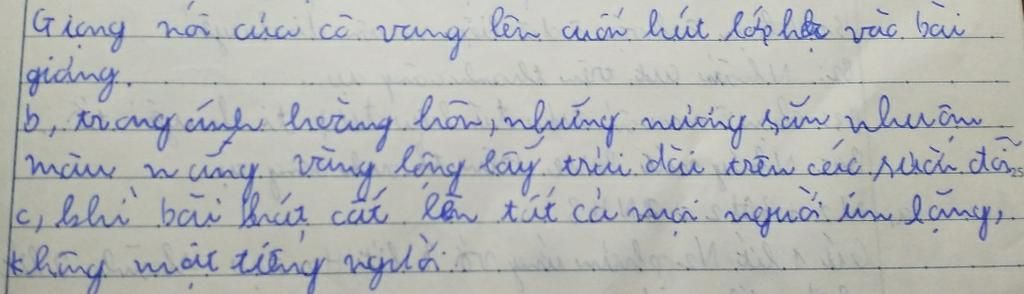 Giọng nói của cô vang lên cuốn hút lớp học vào bài
giảng.
b, trong ánh hoàng hôn, những nương sắn nhuộm
màu nắng vàng lộng lẫy trải dài trên các sườn đồi
c, khi bài hát cất lên tất cả mọi người im lặng,
không một tiếng người.